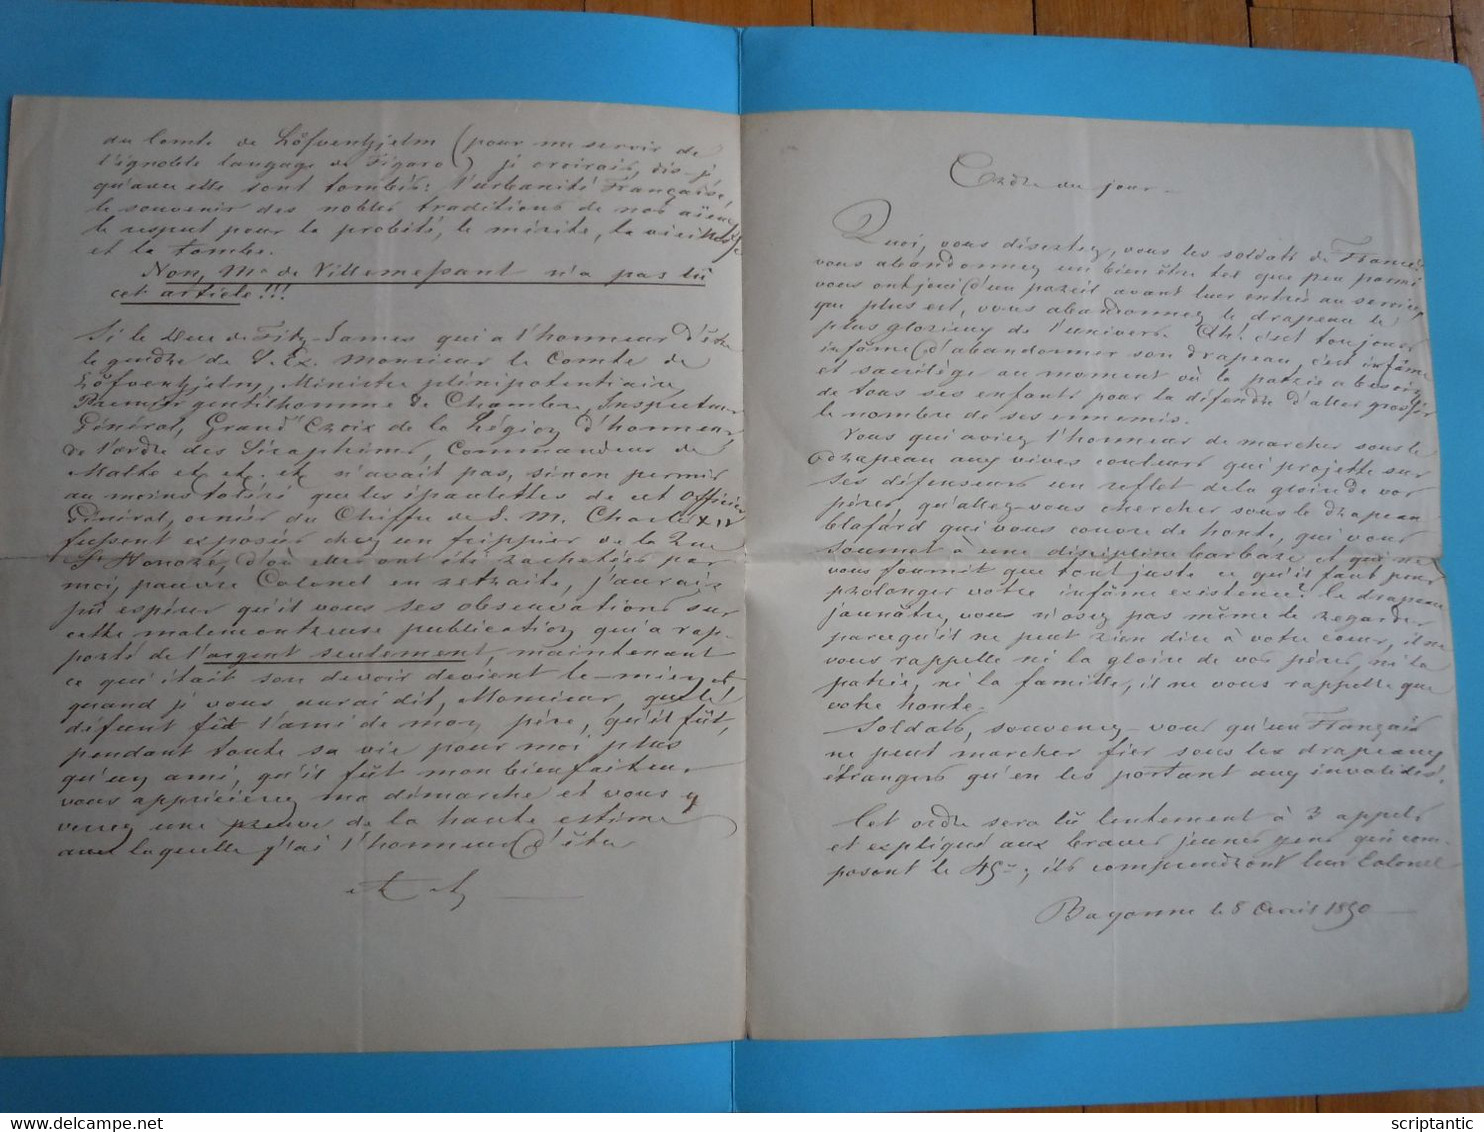 du Comte de Löfvenhjelm (pour me servir de
l'ignoble langage de Figaro) je croirais, dis-je,
qu'avec elle sont tombés: l'urbanité Française,
le souvenir des nobles traditions de nos aïeux,
le respect pour la probité, le mérite, la vieillesse
et la tombe.
Non, Mr de Villemessant n'a pas lû
cet article!!!
Si le Duc de Fitz-James qui a l'honneur d'être
le gendre de S. Ex. Monsieur le Comte de
Löfvenhjelm, Ministre plénipotentiaire,
Premier gentilhomme de Chambre, Inspecteur
Général, Grand' Croix de la Légion d'honneur,
de l'ordre des Séraphims, Commandeur de
Malte et. et. et. n'avait pas, sinon permis
au moins toléré que les épaulettes de cet Officier
Général, ornées du Chiffre de S. M. Charles XIV
fussent exposées chez un frippier de la Rue
St Honoré, d'où elles ont été rachetées par
moi, pauvre Colonel en retraite, j'aurais
pû espérer qu'il vous ses observations sur
cette malencontreuse publication qui a rap-
porté de l'argent seulement, maintenant
ce qu'était son devoir devient le mien et
quand je vous aurai dit, Monsieur, que le
défunt fût l'ami de mon père, qu'il fût,
pendant toute sa vie pour moi plus
qu'un ami, qu'il fût mon bienfaiteur
vous apprécierez ma démarche et vous y
verrez une preuve de la haute estime
avec laquelle j'ai l'honneur d'être
Ordre du jour
Quoi, vous désertez, vous les soldats de France!
vous abandonnez un bien être tel que peu parmi
vous ont joui d'un pareil avant leur entrée au service,
que plus est, vous abandonnez le drapeau le
plus glorieux de l'univers. Ah! c'est toujours
infâme d'abandonner son drapeau, c'est infâme
et sacrilège au moment où la patrie a besoin
de tous ses enfants pour la défendre d'aller grossir
le nombre de ses ennemis.
Vous qui aviez l'honneur de marcher sous le
drapeau aux vives couleurs qui projette sur
ses défenseurs un reflet de la gloire de vos
pères, qu'allez-vous chercher sous le drapeau
blafard qui vous couvre de honte, qui vous
soumet à une discipline barbare et qui ne
vous fournit que tout juste ce qu'il faut pour
prolonger votre infâme existence? le drapeau
jaunâtre, vous n'osez pas même le regarder
parcequ'il ne peut rien dire à votre cœur, il ne
vous rappelle ni la gloire de vos pères, ni la
patrie, ni la famille, il ne vous rappelle que
votre honte.
Soldats, souvenez-vous qu'un Français
ne peut marcher fier sous les drapeaux
étrangers qu'en les portant aux invalides!
Cet ordre sera lû lentement à 3 appels
et expliqué aux braves jeunes gens qui com-
posent le 45me; ils comprendront leur Colonel
Bayonne le 8 Avril 1850
scriptantic